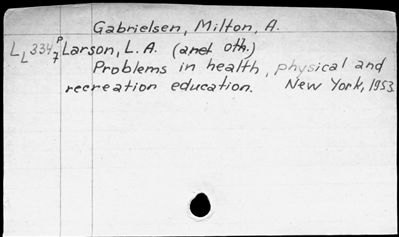 Gabrielsen, Milton, A.
L L 334 P 7 Larson, L. A. (and oth.)
Problems in health, physical and
recreation education. New York, 1953.